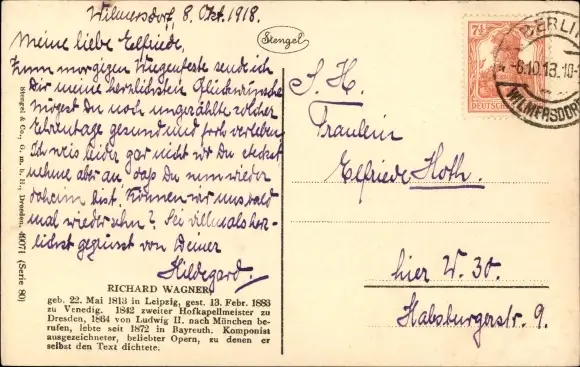 Wilmersdorf, 8. Okt. 1918.
Meine liebe Elfriede,
Zum morgigen Wiegenfeste sende ich
Dir meine herzlichsten Glückwünsche
mögest Du noch ungezählte solcher
Ehrentage gesund und froh verleben
Ich weis leider gar nicht wo Du steckst
nehme aber an, daß Du nun wieder
daheim bist. Können wir uns bald
mal wiedersehn? Sei vielmals herz-
lichst gegrüsst von Deiner
Hildegard.
RICHARD WAGNER,
geb. 22. Mai 1813 in Leipzig, gest. 13. Febr. 1883
zu Venedig. 1842 zweiter Hofkapellmeister zu
Dresden, 1864 von Ludwig II. nach München be-
rufen, lebte seit 1872 in Bayreuth. Komponist
ausgezeichneter, beliebter Opern, zu denen er
selbst den Text dichtete.
Stengel & Co., G. m. b. H., Dresden. 49071 (Serie 80)
Stengel
S. H.
Fräulein
Elfriede Hoth.
hier W. 30.
Habsburgerstr. 9.
7½
DEUTSCHES
BERLIN
WILMERSDORF